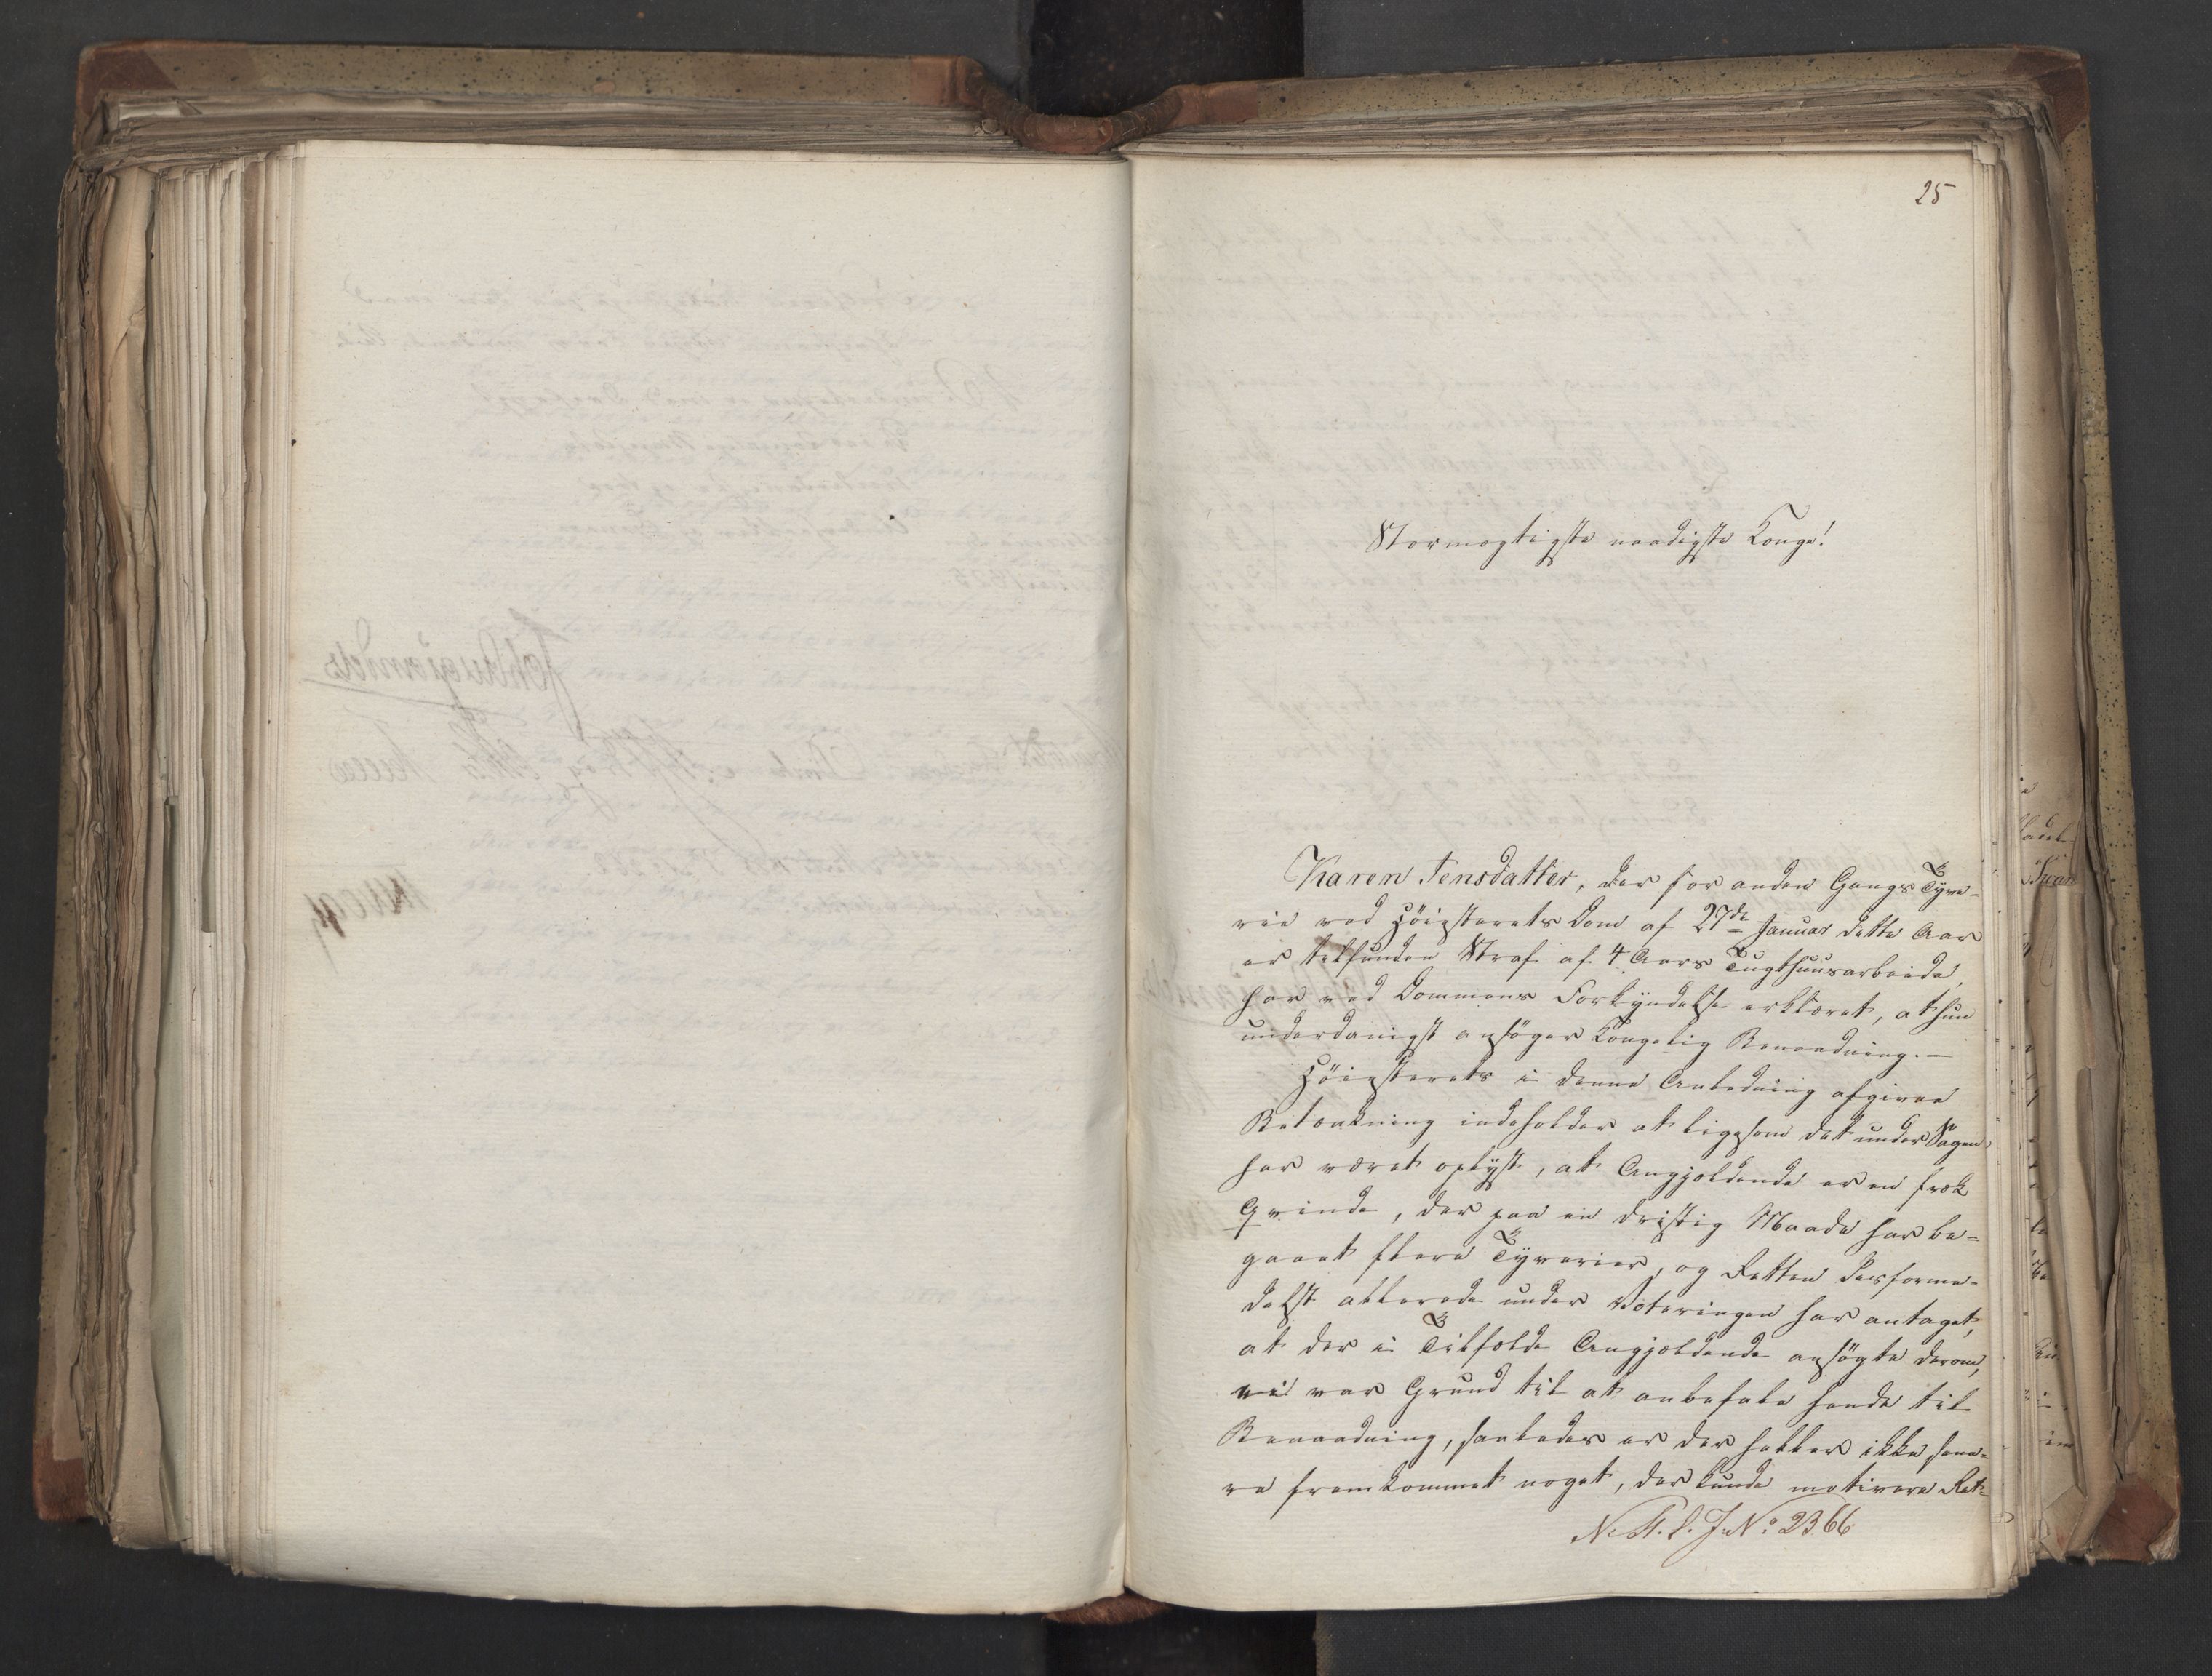 25
Stormægtigste naadigste Konge!
Karen Jensdatter, der for anden Gangs Tyve-
rie ved Höiesterets Dom af 27de Januar dette Aar
er tilfunden Straf af 4 Aars Tugthuusarbeide,
har ved Dommens Forkyndelse erklæret, at hun
underdanigst ansöger Kongelig Benaadning.-
Höiesterets i denne Anledning afgivne
Betænkning indeholder at ligesom det under Sagen
har været oplyst, at Angjældende er en fræk
Qvinde, der paa en dristig Maade har be-
gaaet flere Tyverier, og Retten derforme-
delst allerede under Voteringen har antaget,
at der i Tilfælde Angjældende ansögte derom,
ei var Grund til at anbefale hende til
Benaadning, saaledes er der heller ikke sene-
re fremkommet noget, der kunde motivere Ret-
J. No. 2366